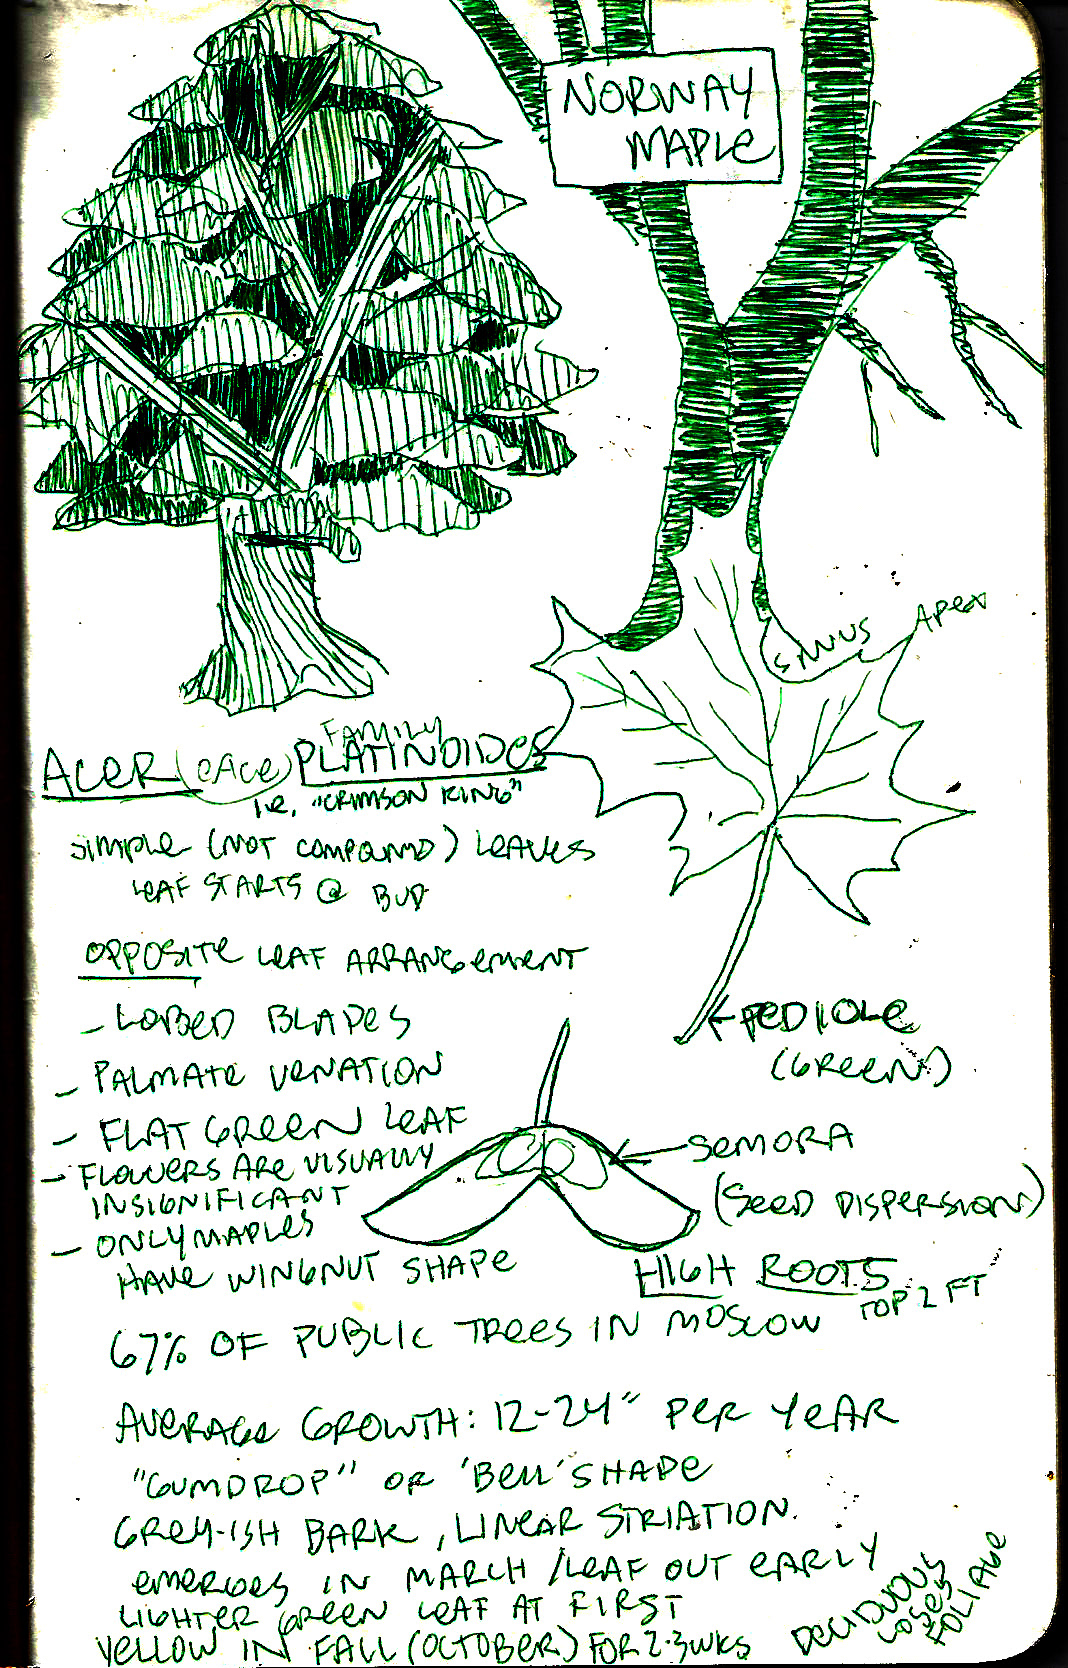 NORWAY
MAPLE
SINUS
APEX
FAMILY
ACER (EACE) PLATINOIDES
i.e. "CRIMSON KING"
SIMPLE (NOT COMPOUND) LEAVES
LEAF STARTS @ BUD
OPPOSITE LEAF ARRANGEMENT
- LOBED BLADES
- PALMATE VENATION
- FLAT GREEN LEAF
- FLOWERS ARE VISUALLY
INSIGNIFICANT
- ONLY MAPLES
HAVE WINGNUT SHAPE
PEDIOLE
(GREEN)
SEMORA
(SEED DISPERSION)
HIGH ROOTS
TOP 2 FT
67% OF PUBLIC TREES IN MOSCOW
AVERAGE GROWTH: 12-24" PER YEAR
"GUMDROP" OR 'BELL' SHAPE
GREY-ISH BARK, LINEAR STRIATION.
EMERGES IN MARCH / LEAF OUT EARLY
LIGHTER GREEN LEAF AT FIRST
YELLOW IN FALL (OCTOBER) FOR 2-3 WKS
DECIDUOUS
LOSES
FOLIAGE